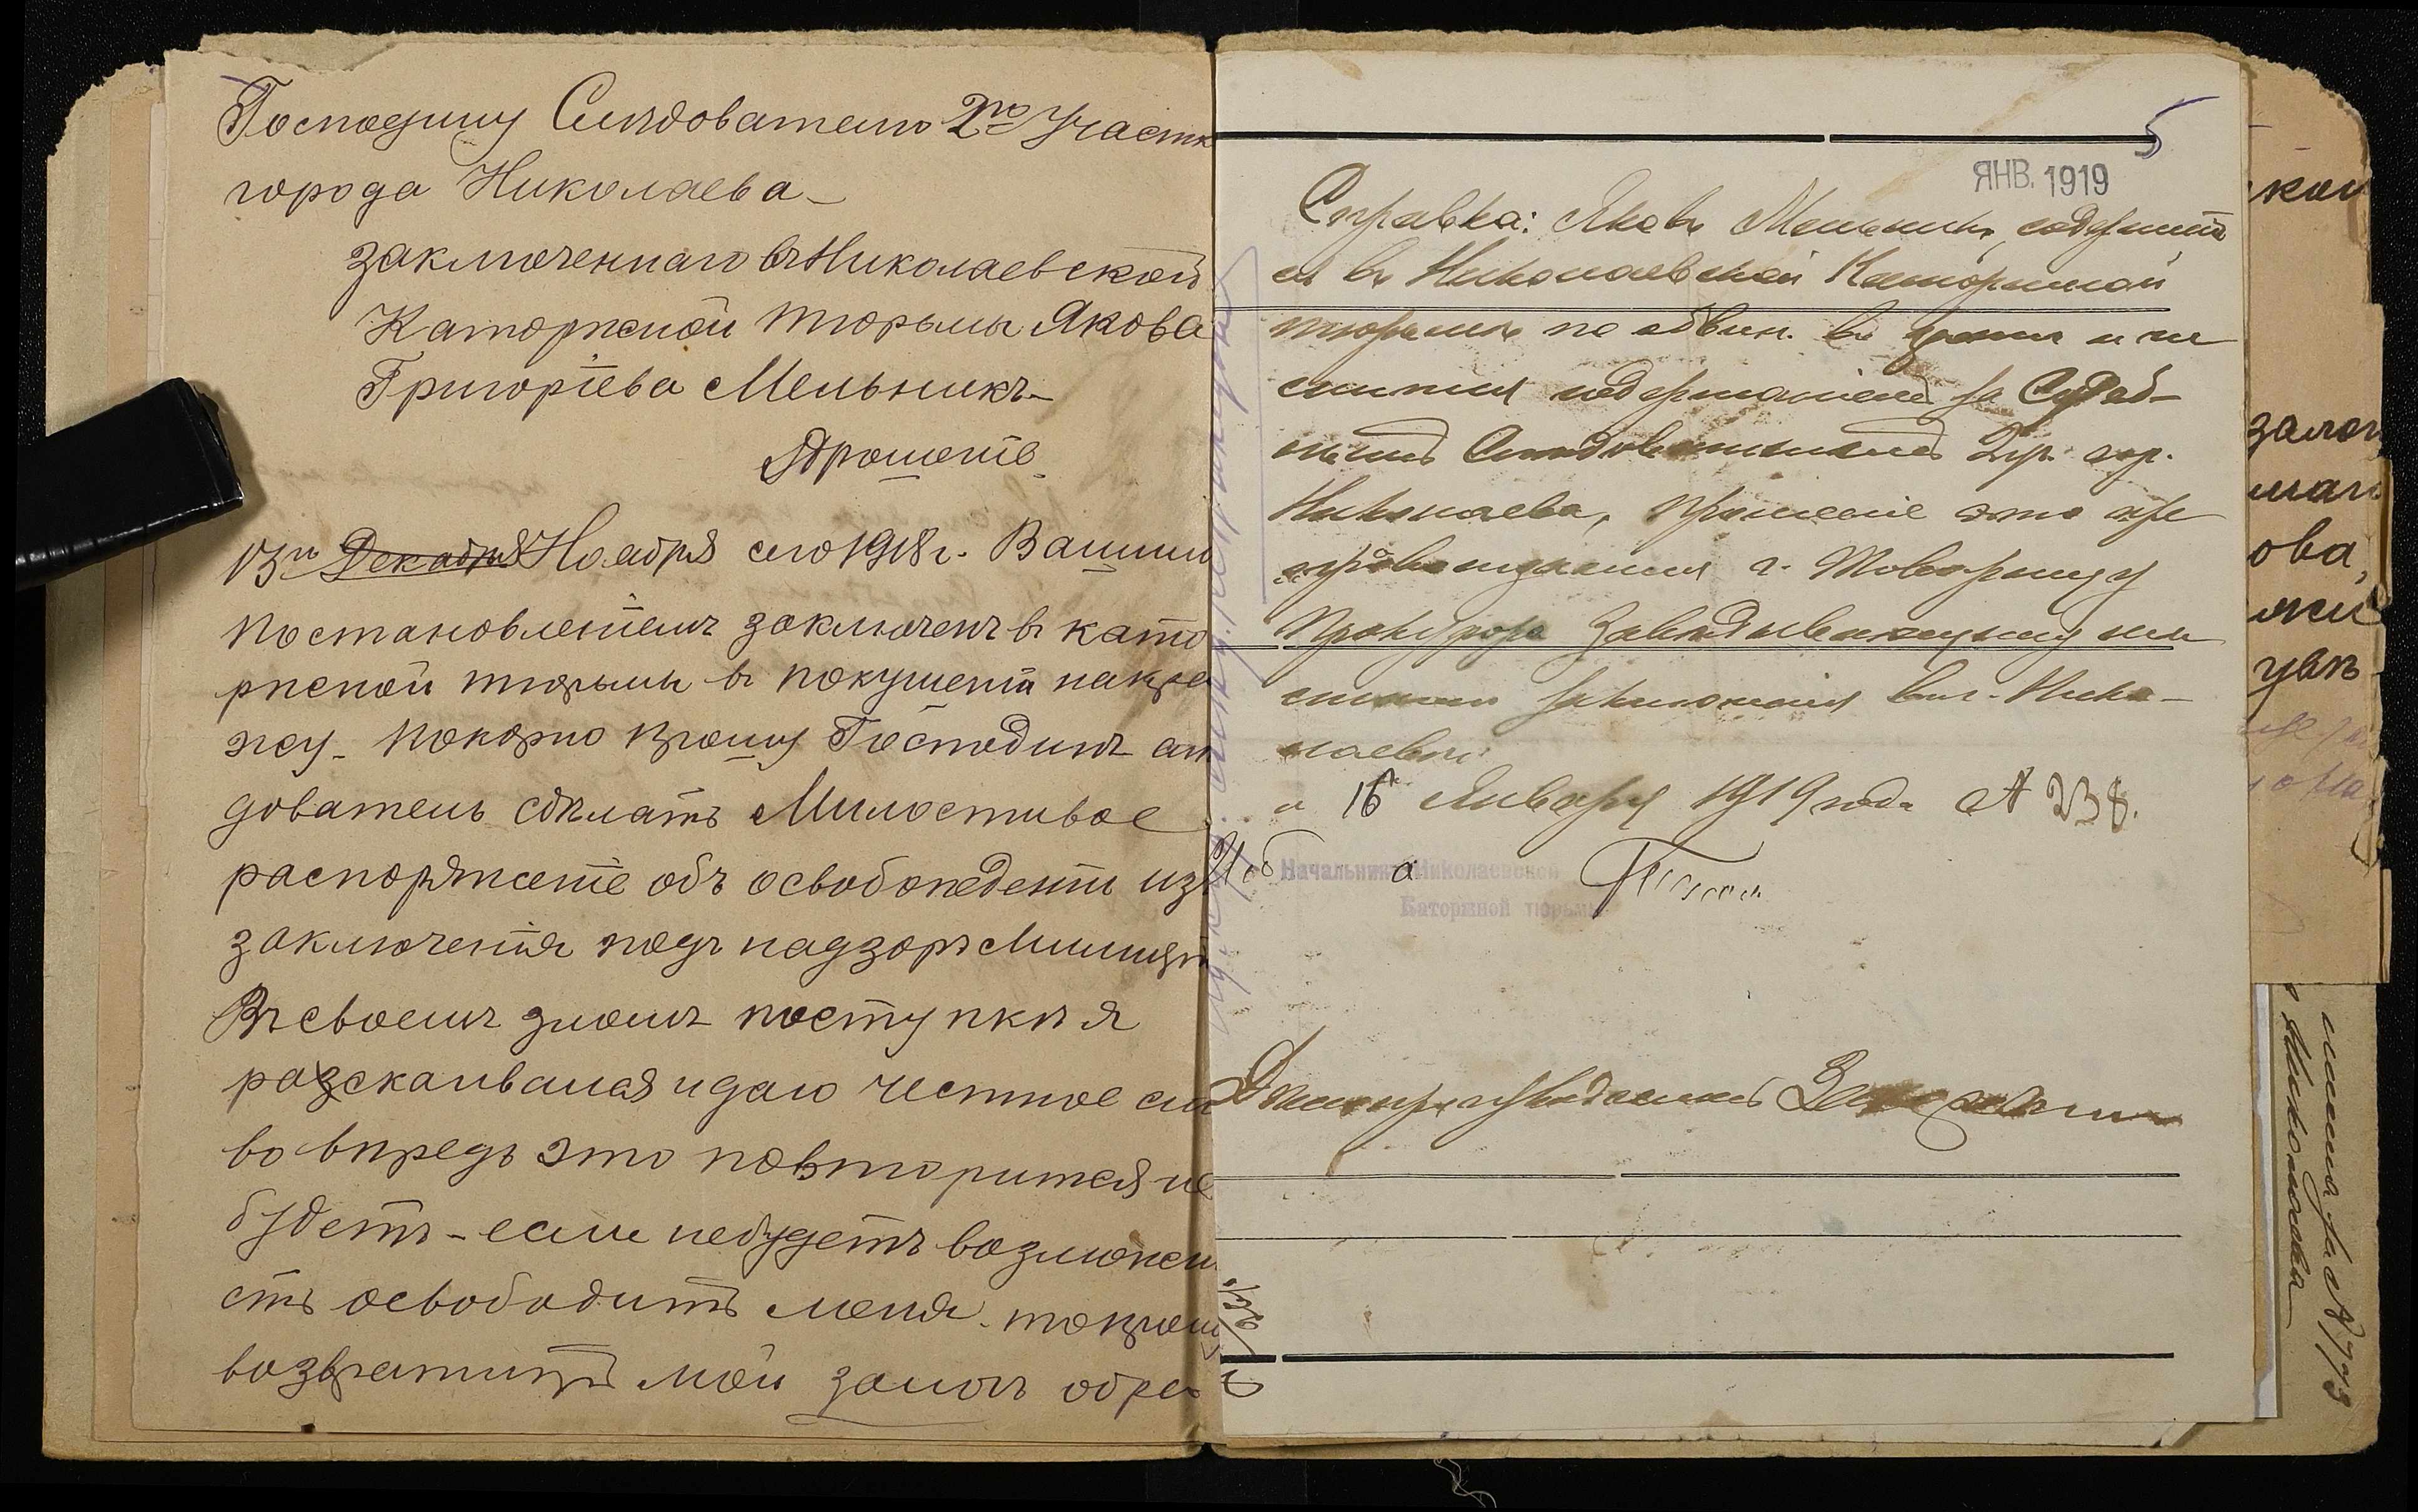 Господину Слѣдователю 2го Участк
города Николаева –
заключеннаго въ Николаевской
Каторжной тюрьмы Якова
Григоріева Мельникъ –
Прошеніе
13го Декабря Ноября сего 1918 г. Вашим
постановленіемъ заключенъ в като
ржной тюрьмы в покушеніи на кра
жу – покорно прошу Господинъ слѣ
дователь сдѣлать Милостивое
распоряженіе объ освобожденіи изъ
заключенія подъ надзоръ Милиціи
Въ своемъ зломъ поступкѣ я
разскаивалася и даю честное сло
во впредь это повторится не
будетъ – если небудетъ возможно
сть освободить меня. то прошу
возвратить мой залогъ обре
5
ЯНВ. 1919
Справка: Яковъ Мельникъ, содержит
ся въ Николаевской Каторжной
тюрьмѣ по обвин. въ кражѣ и чи
слится содержаніемъ за Судеб-
нымъ Слѣдователемъ 2 уч. гор.
Николаева, прошеніе это пре
провождается г. Товарищу
Прокурора Завѣдывающему мѣ
стами заключенія въ г. Нико-
лаевѣ.
16 Января 1919 года № 238.
Начальника Николаевской
Каторжной тюрьмы
Дѣлопроизводитель
кой
зало
ова,